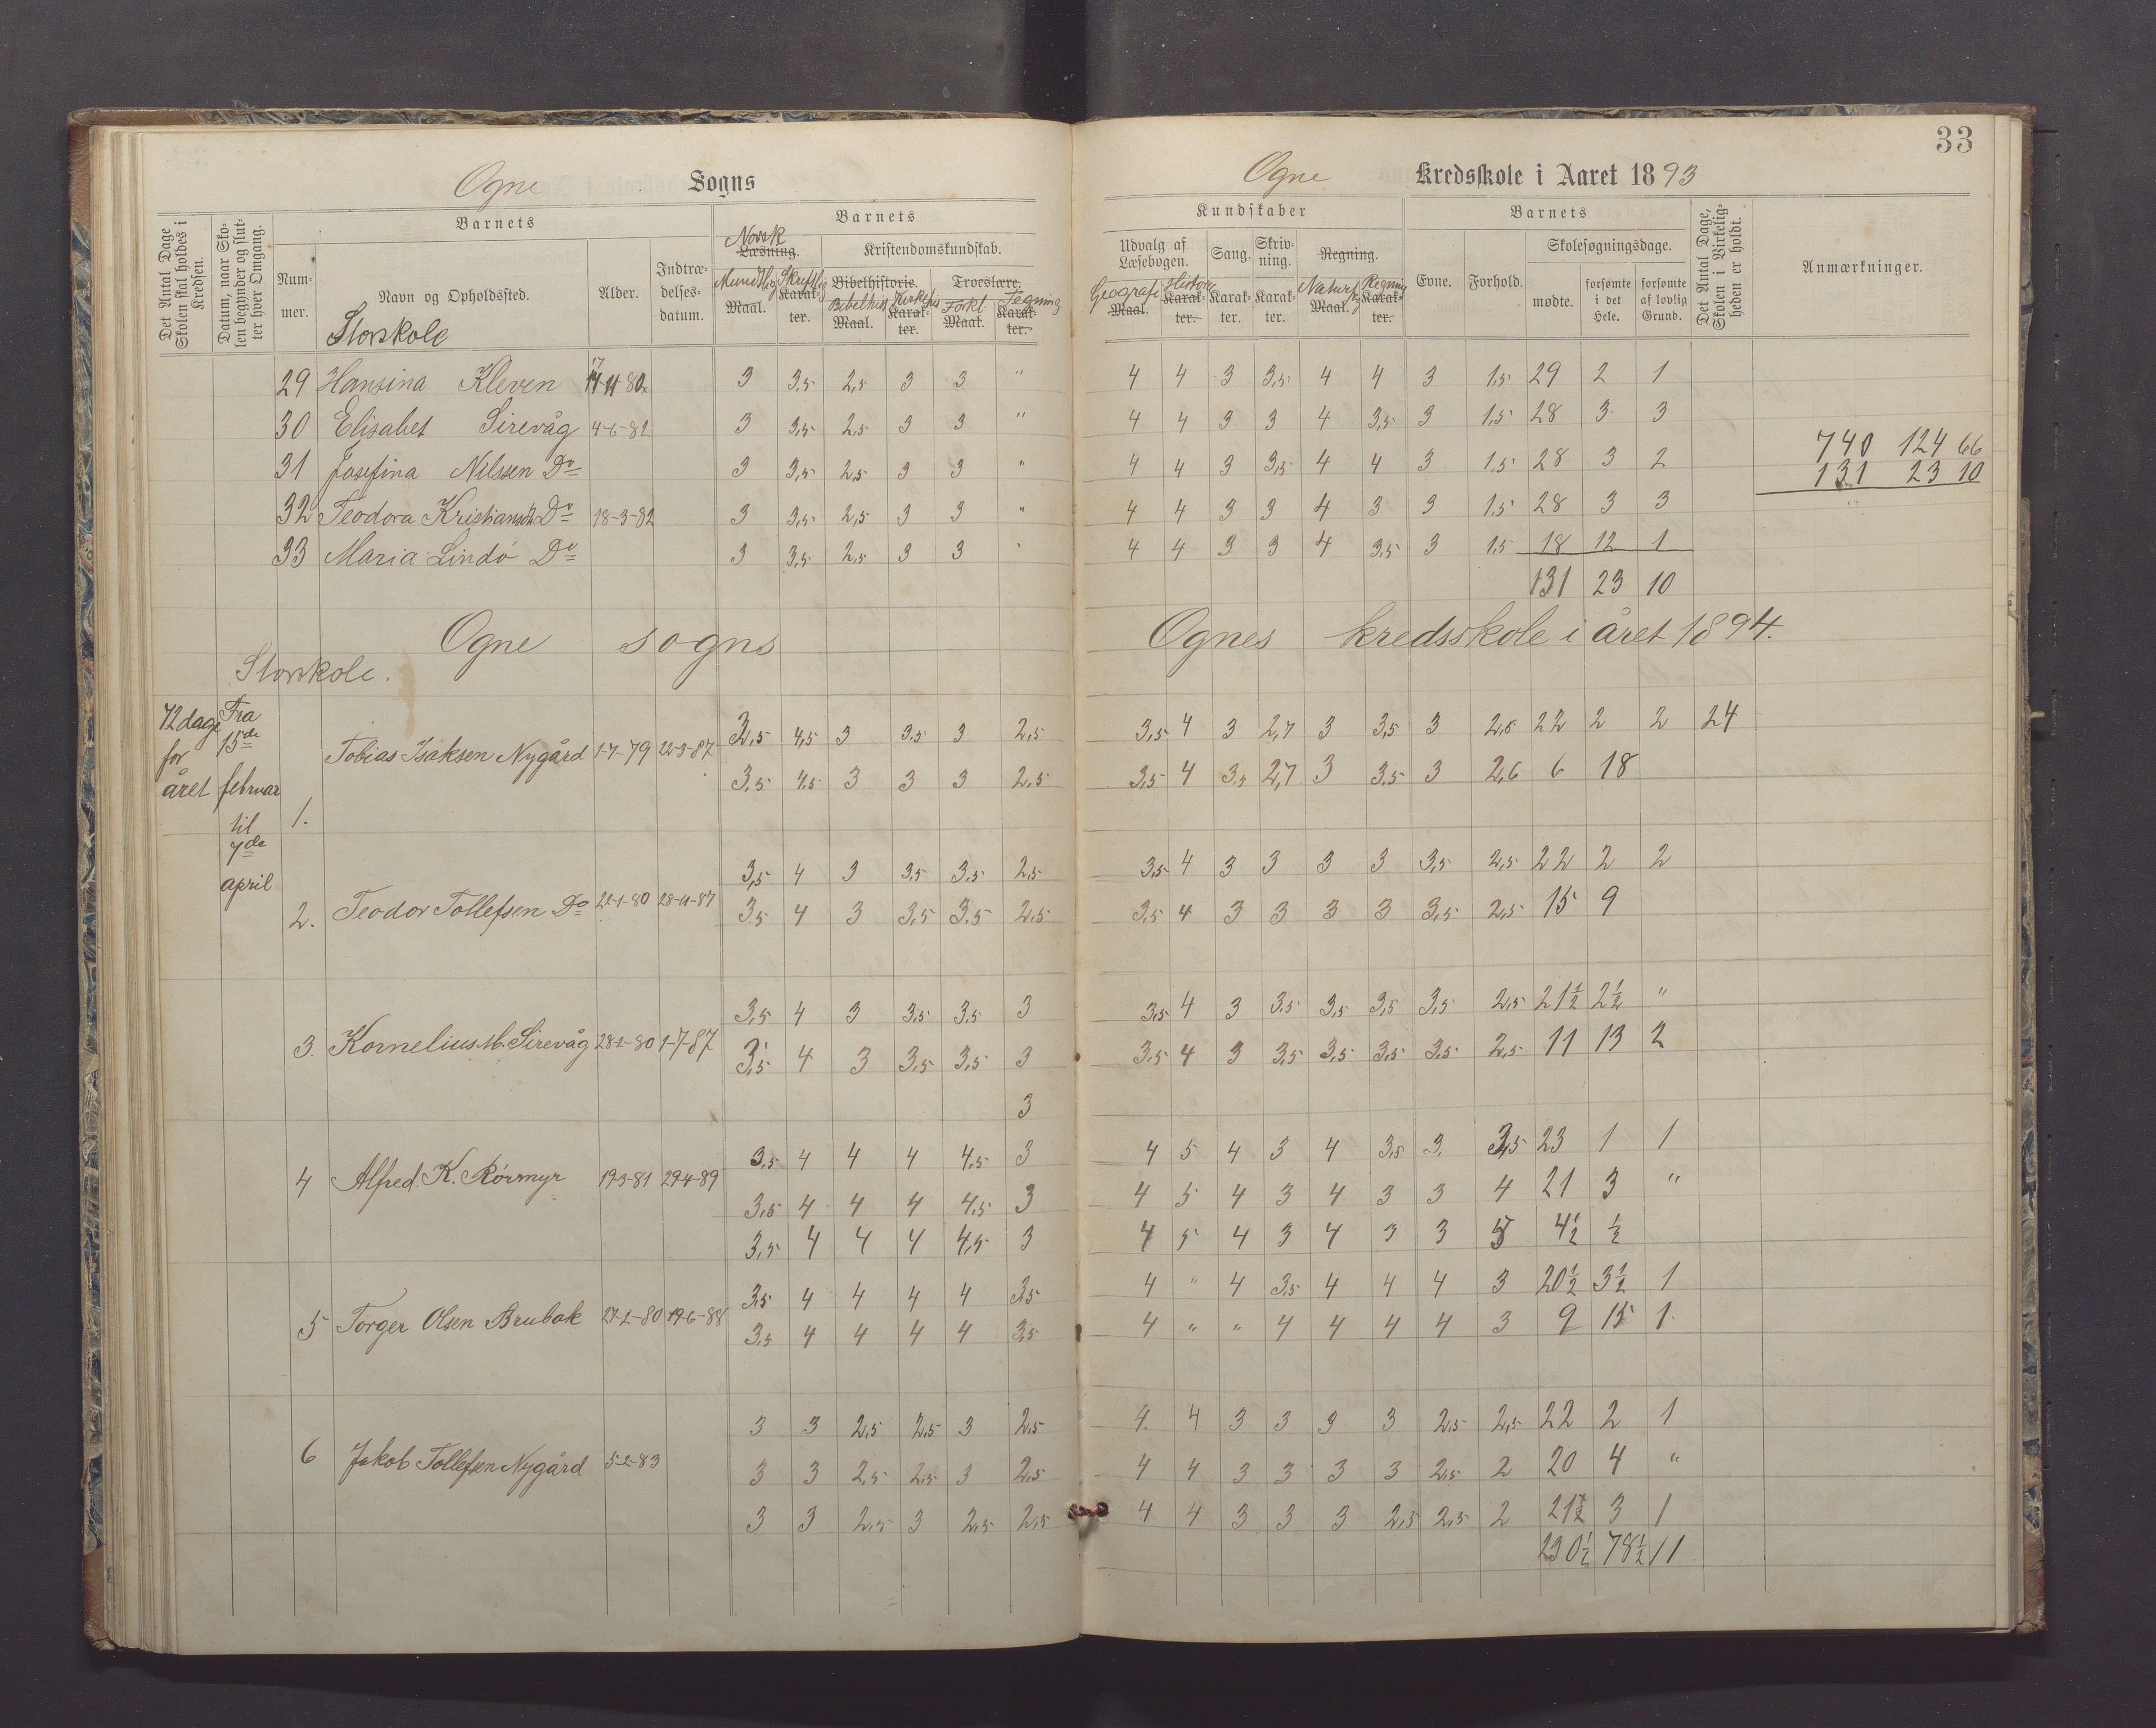 33
Ogne Sogns Ogne Kredsskole i Aaret 1893
Det Antal Dage Skolen skal holdes i Kredsen.
Datum, naar Skolen begynder og slutter hver Omgang.
Barnets
Nummer.
Navn og Opholdssted.
Alder.
Indtrædelsesdatum.
Barnets
Norsk
Læsning.
Mundtlig Skriftlig
Maal. Karakter.
Kristendomskundskab.
Bibelhistorie. Troeslære.
Bibelhist. Forkl. Tegning
Maal. Karakter. Maal. Karakter.
Kundskaber
Udvalg af Læsebogen.
Geografi Historie
Maal. Karakter.
Sang. Karakter.
Skrivning. Karakter.
Regning.
Naturf Regning
Maal. Karakter.
Barnets
Evne. Forhold.
Skolesøgningsdage.
mødte. forsømte i det Hele. forsømte af lovlig Grund.
Det Antal Dage, Skolen i Virkeligheden er holdt.
Anmærkninger.
Storskole
29 Hansina Kleven 80 3 3,5 2,5 3 3 " 4 4 3 3,5 4 4 3 1,5 29 2 1
30 Elisabet Sirevåg 4-6-82 3 3,5 2,5 3 3 " 4 4 3 3 4 3,5 3 1,5 28 3 3
740 124 66
31 Josefina Nilssen Do 3 3,5 2,5 3 3 " 4 4 3 3,5 4 4 3 1,5 28 3 2
131 23 10
32 Teodora Kristiansen Do 18-3-82 3 3,5 2,5 3 3 " 4 4 3 3 4 3 3 1,5 28 3 3
33 Maria Lindö Do 3 3,5 2,5 3 3 " 4 4 3 3 4 3,5 3 1,5 18 12 1
131 23 10
Ogne sogns Ognes kredsskole i året 1894.
Storskole.
72 dage for året
Fra 15de februar til 7de april
1. Tobias Isaksen Nygård 1-7-79 22-3-87 3,5 4,5 3 3,5 3 2,5 3,5 4 3 2,7 3 3,5 3 2,6 22 2 2 24
3,5 4,5 3 3 3 2,5 3,5 4 3,5 2,7 3 3,5 3 2,6 6 18
3,5 4 3 3,5 3,5 2,5 3,5 4 3 3 3 3 3,5 2,5 22 2 2
2. Teodor Tollefsen Do 22-1-80 28-11-87 3,5 4 3 3,5 3,5 2,5 3,5 4 3 3 3 3 3,5 2,5 15 9
3,5 4 3 3,5 3,5 3 3,5 4 3 3,5 3,5 3,5 3,5 2,5 21½ 2½ "
3. Kornelius M. Sirevåg 28-2-80 1-7-87 3,5 4 3 3,5 3,5 3 3,5 4 3 3,5 3,5 3,5 3,5 2,5 11 13 2
3
3,5 4 4 4 4,5 3 4 5 4 3 4 3,5 3. 3,5 23 1 1
4 Alfred K. Rörmyr 19-3-81 29-4-89 3,5 4 4 4 4,5 3 4 5 4 3 4 3 3 4 21 3 "
3,5 4 4 4 4,5 3 4 5 4 3 4 3 3 5 4½ ½
3,5 4 4 4 4 3,5 4 " 4 3,5 4 4 4 3 20½ 3½ 1
5 Torger Olsen Brubak 27-2-80 19-6-88 3,5 4 4 4 4 3,5 4 " " 4 4 4 4 3 9 15 1
3 3 2,5 2,5 3 2,5 4 4 3 3 3 3 2,5 2,5 22 2 1
6 Jakob Tollefsen Nygård 5-2-83 3 3 2,5 2,5 3 2,5 4 4 3 3 3 3 2,5 2 20 4 "
3 3 2,5 3 2,5 2,5 4 4 3 3 3 2,5 2,5 2 21½ 3 1
230½ 78½ 11